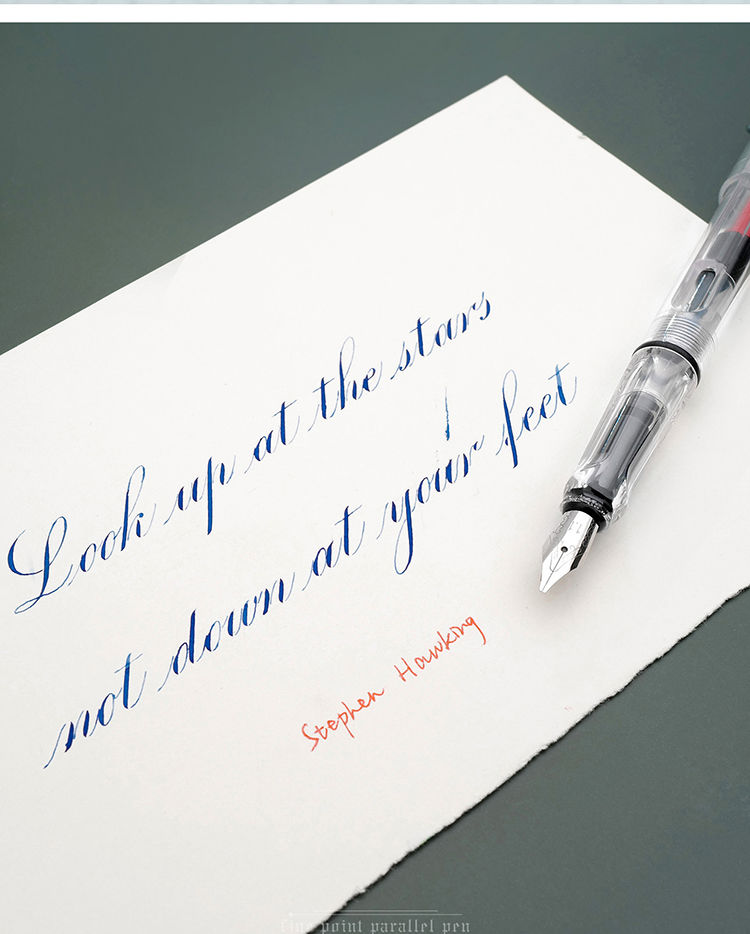 Look up at the stars
not down at your feet
Stephen Hawking
fine point parallel pen